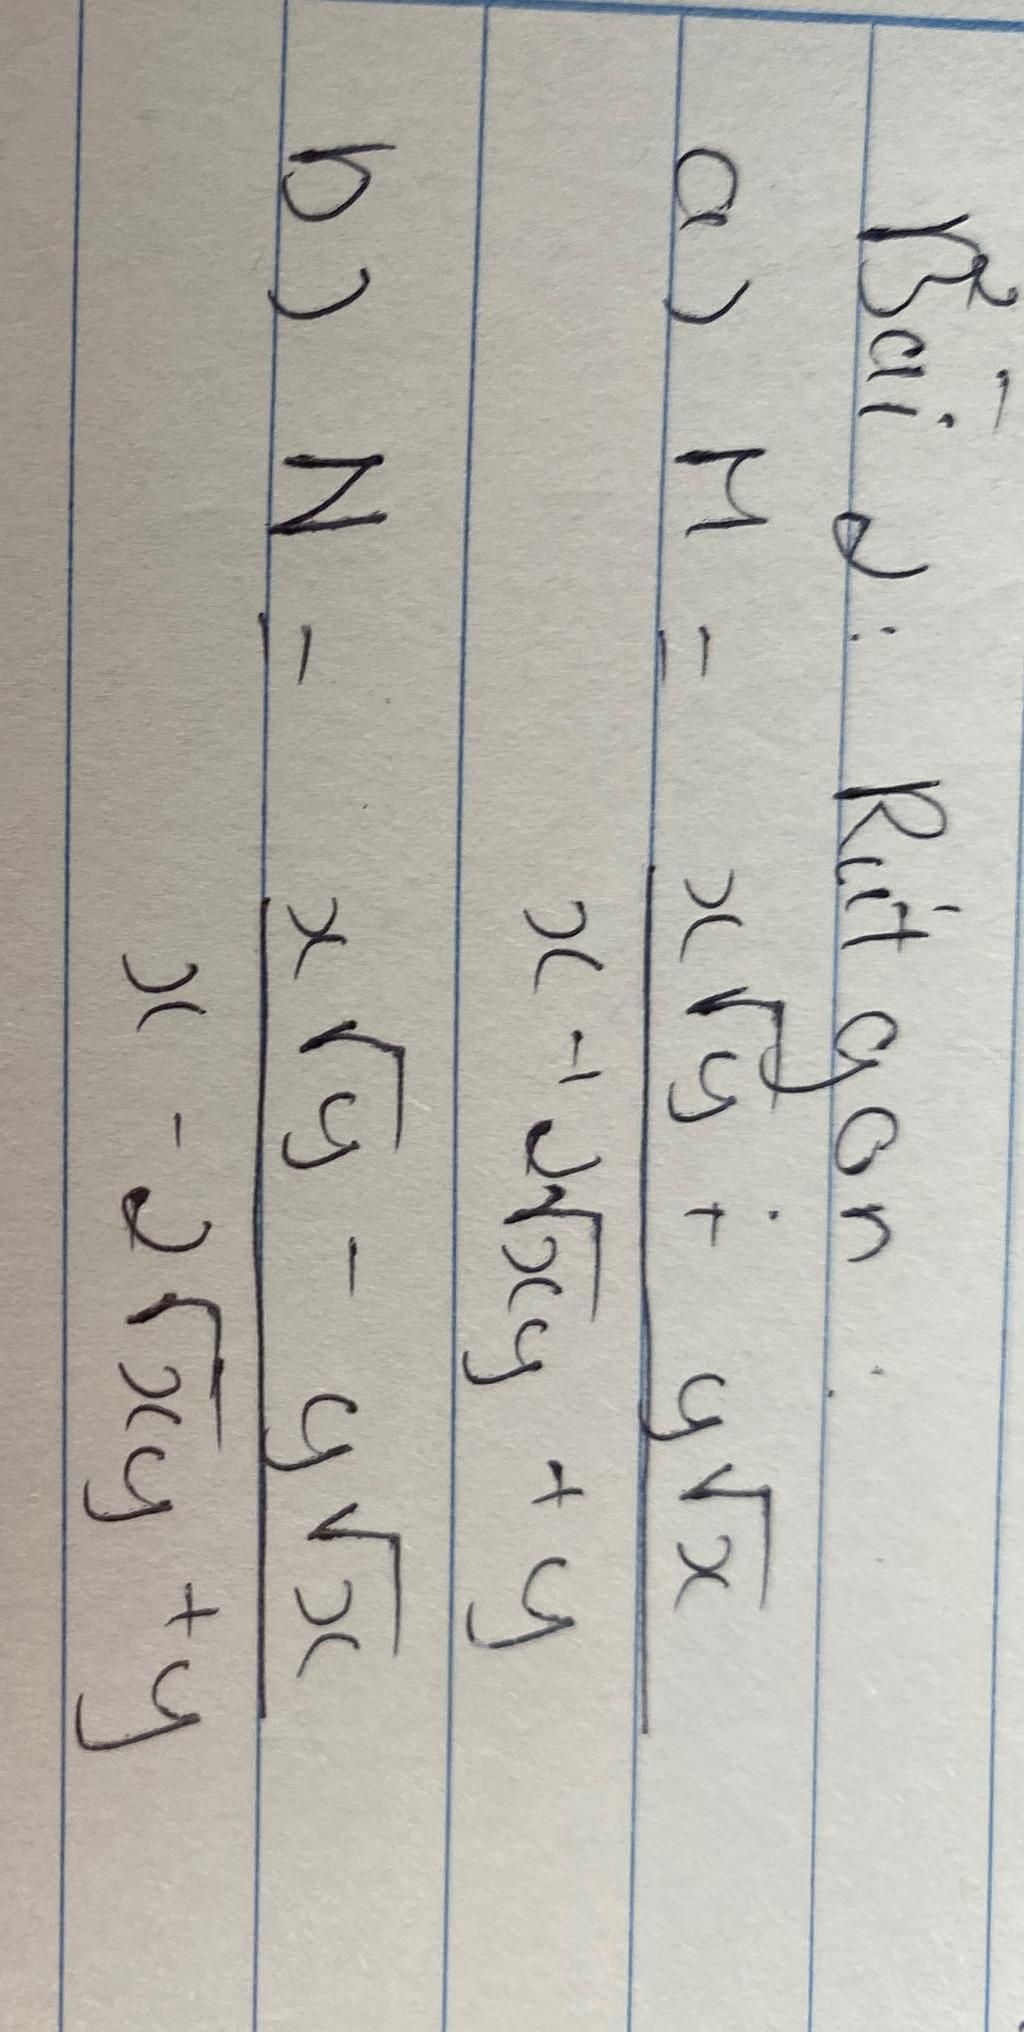 Bài 2: Rút gọn.
a) M = x√y + y√x
x + 2√xy + y
b) N = x√y - y√x
x - 2√xy + y